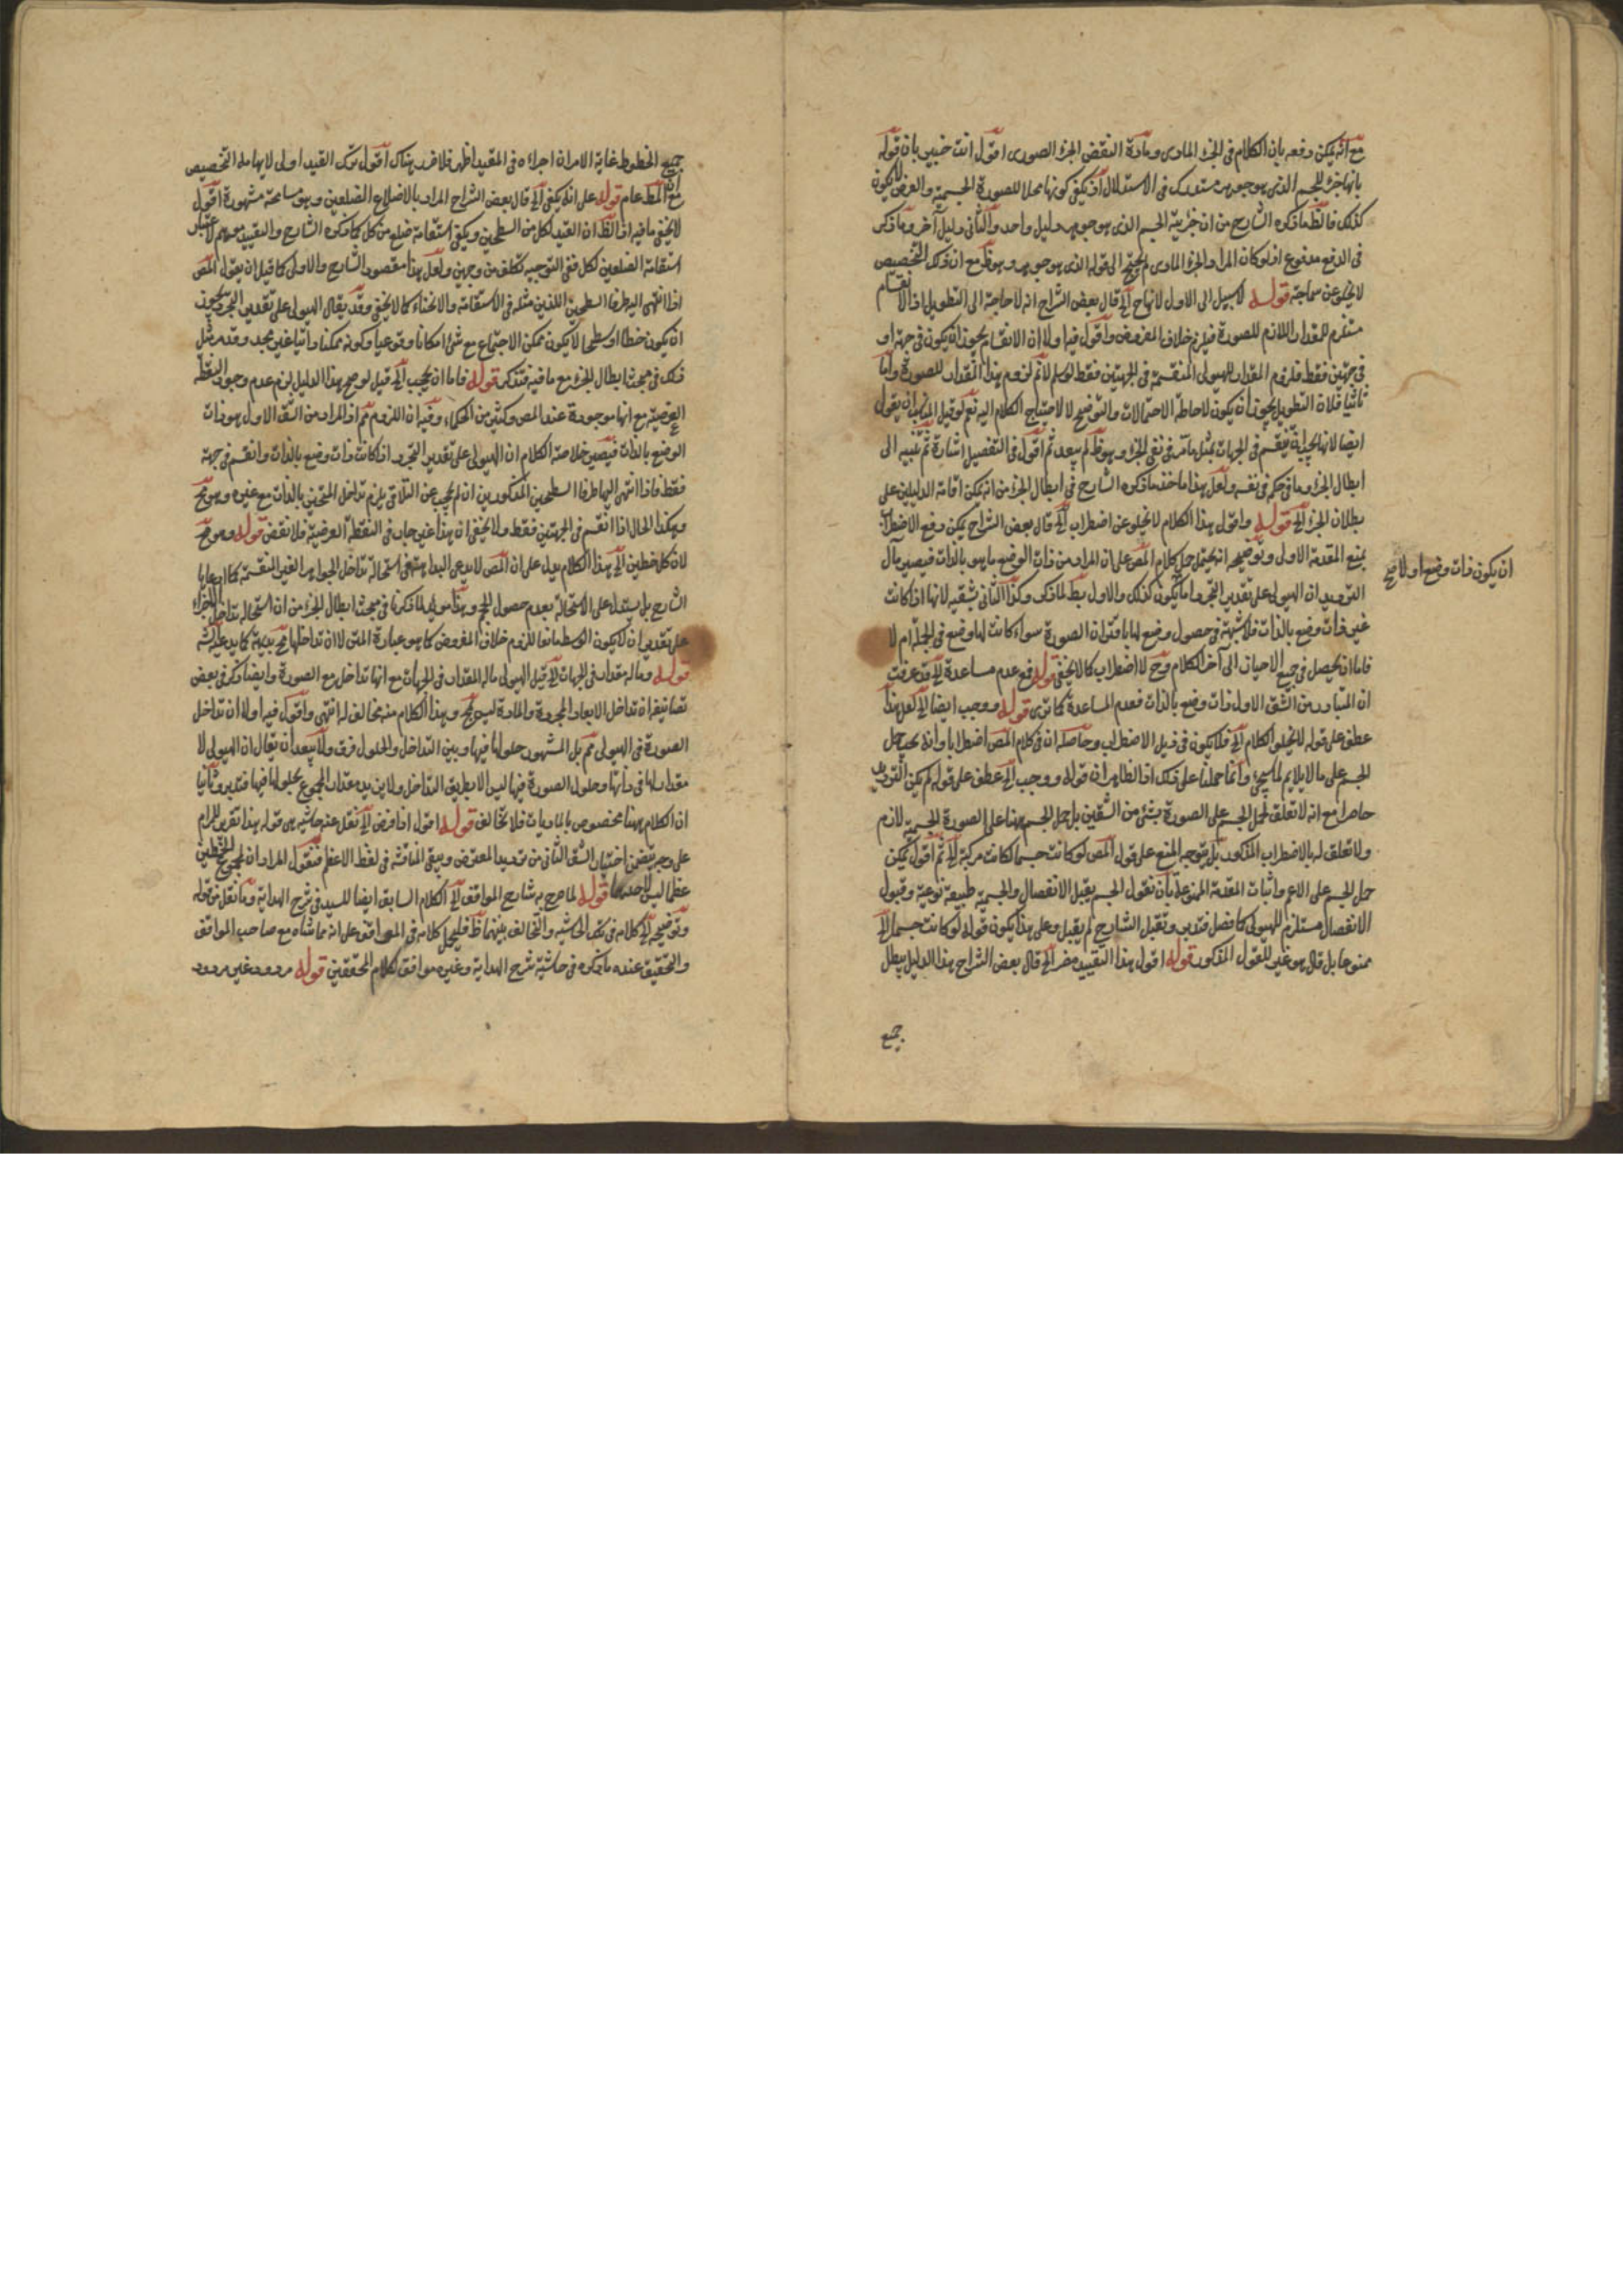 مع انه يمكن دفعه بان الكلام فى الجزء المادى ومادة النقض الجزء الصورى اقول انت خبير بان قوله
بانها جزء للجسم الذى هو جوهر مستدرك فى الاستدلال اذ يكفى كونها محلا للصورة الجسمية والغرض لا يكون
كذلك فالظ ما ذكره الشارح من ان جزئية الجسم الذى هو جوهر دليل واحد والثانى دليل آخر وما ذكر
فى الدفع مدفوع اذ لو كان المراد الجزء المادى لم يحتج الى قوله الذى هو جوهر وهو ظ مع ان ذلك التخصيص
لا يخلو عن سماجة قوله لا سبيل الى الاول لانها ح الخ قال بعض الشراح انه لا حاجة الى التطويل اذ الانقسام
مستلزم للمقدار اللازم للصورة فيلزم خلاف المفروض واقول فيه اولا ان الانقسام يجوز ان يكون فى جهة او
فى جهتين فقط فلزوم المقدار للهيولى المنقسمة فى الجهتين فقط لو سلم لا نم لزوم هذا المقدار للصورة واما
ثانيا فلان التطويل يجوز ان يكون لاحاطة الاحتمالات والتوضيح لا لاحتياج الكلام اليه نعم لو قيل المناسب ان يقول
ايضا لانها ح اما ان ينقسم فى الجهات بمثل ما مر فى نفى الجزء وهو ظ لم يبعد ثم اقول فى التفصيل اشارة ثم تنبيه الى
ابطال الجزء وما فى حكمه فى نفسه ولعل هذا ماخذ ما ذكره الشارح فى ابطال الجزء من انه يمكن اقامة الدليلين على
بطلان الجزء الخ قوله واقول هذا الكلام لا يخلو عن اضطراب الخ قال بعض الشراح يمكن دفع الاضطراب
بمنع المقدمة الاولى وتوضيحه انه يحتمل حمل كلام المص على ان المراد من ذات الوضع ما هو بالذات فيصير مآل
الترديد ان الهيولى على تقدير التجرد اما ان يكون كذلك والاول بط لما ذكر وكذا الثانى بشقيه لانها اذا كانت
ان يكون ذات وضع اولا ح
غير ذات وضع بالذات فلا شبهة فى حصول وضع لها باقتران الصورة سواء كانت لها وضع فى الجملة ام لا
فاما ان يحصل فى جميع الاحياز الى آخر الكلام وح لا اضطراب كما لا يخفى قوله مع عدم مساعدة الخ قد عرفت
ان المتبادر من الشق الاول ذات وضع بالذات فعدم المساعدة كما ترى قوله ووجب ايضا الخ لعل هذا
عطف على قوله لا يخلو الكلام الخ فلا يكون فى ذيل الاضطراب وحاصله ان فى كلام المص اضطرابا وانه يجب حمل
الجسم على ما لا يلايم لما سيجئ وانما حملنا على ذلك اذ الظاهر ان قوله ووجب الخ عطف على قوله لم يكن الترديد
حاصرا مع انه لا تعلق لحمل الجسم على الصورة بشئ من الشقين بل حمل الجسم ههنا على الصورة الجسمية لازم
ولا تعلق له بالاضطراب المذكور بل يتوجه المنع على قول المص لو كانت جسما لكانت مركبة الخ ثم اقول يمكن
حمل الجسم على الاعم واثبات المقدمة الممنوعة بان نقول الجسم يقبل الانفصال والجسمية طبيعة نوعية وقبول
الانفصال مستلزم للهيولى كما فصل فتدبر ونقل الشارح لم يقبل وعلى هذا يكون قوله لو كانت جسما الخ
ممنوعا بل قال هو غير للقول المذكور قوله اقول هذا التقييد مضر الخ قال بعض الشراح هذا الدليل يبطل
جميع
جميع الخطوط غاية الامر ان اجراءه فى المقيد اظهر فلا ضرر هناك اقول ترك القيد اولى لايهامه التخصيص
مع ان المط عام قوله على انه يكفى الخ قال بعض الشراح المراد بالاضلاع الضلعين وهو مسامحة مشهورة اقول
لا يخفى ما فيه اذ الظ ان القيد لكل من السطحين ويكفى استقامة ضلع من كل كما ذكره الشارح والتقييد موهم لاعتبار
استقامة الضلعين لكل ففى التوجيه تكلف من وجهين ولعل هذا مقصود الشارح والاولى كما قيل ان يقول المص
اذا انتهى اليه طرفا السطحين اللذين مثله فى الاستقامة والانحناء كما لا يخفى وقد يقال الهيولى على تقدير التجرد يجوز
ان يكون خطا او سطحا لا يكون ممكن الاجتماع مع شئ امكانا وقوعيا وكونه ممكنا ذاتيا غير مجد وقد مر مثل
ذلك فى مبحث ابطال الجزء مع ما فيه فتذكر قوله فاما ان يحجب الخ قيل لو صح هذا الدليل لزم عدم وجود النقطة
العرضية مع انها موجودة عند المص وكثير من الحكماء وفيه ان اللزوم مم اذ المراد من الشق الاول هو ذات
الوضع بالذات فيصير خلاصة الكلام ان الهيولى على تقدير التجرد اذا كانت ذات وضع بالذات وانقسم فى جهة
فقط فاذا انتهى اليها طرفا السطحين المذكورين ان لم يحجب عن التلاقى يلزم تداخل المتحيز بالذات مع غيره وهو مح
وهكذا الحال اذا انقسم فى الجهتين فقط ولا يخفى ان هذا غير جار فى النقطة العرضية فلا نقض قوله وهو مح
لان كل خطين الخ هذا الكلام يدل على ان المص لا يدعى البداهة فى استحالة تداخل الجواهر الغير المنقسمة كما ادعاها
الشارح بل استدل على الاستحالة بعدم حصول الحجم وهذا مؤيد لما ذكرنا فى مبحث ابطال الجزء من ان استحالة تداخل الاجزاء
على تقدير ان لا يكون الوسط مانعا للزوم خلاف المفروض كما هو عبارة المتن لا ان تداخلها مح بديهة كما يدعيه الشارح
قوله وماله مقدار فى الجهات الخ قيل الهيولى ماله المقدار فى الجهات مع انها تداخل مع الصورة وايضا ذكر فى بعض
تصانيفه ان تداخل الابعاد المجردة والمادة ليس بمح وهذا الكلام منه مخالف له انتهى واقول فيه اولا ان تداخل
الصورة فى الهيولى مم بل المشهور حلولها فيها وبين التداخل والحلول فرق ولا يبعد ان يقال ان الهيولى لا
مقدار لها فى ذاتها وحلول الصورة فيها ليس الا بطريق التداخل ولا يزيد مقدار المجموع بحلولها فيها فتدبر وثانيا
ان الكلام ههنا مخصوص بالماديات فلا تخالف قوله اقول اذا فرض الخ نقل عنه حاشيه هى قوله هذا تقرير للمرام
على وجه يتضمن اختيار الشق الثانى من ترديد المعترض ويبقى المناقشة فى لفظ الاعظم فنقول المراد ان لمجموع الخطين
عظما ليس لاحدهما قوله لما صرح به شارح المواقف الخ الكلام السابق ايضا للسيد فى شرح الهداية وما نقل من قوله
وتوضيحه الخ كلامه فى تلك الحاشيه والتخالف بينهما ظ فليحمل كلامه فى المواقف على انه مماشاه مع صاحب المواقف
والتحقيق عنده ما ذكره فى حاشية شرح الهداية وغيره موافق لكلام المحققين قوله مردود غير مردود